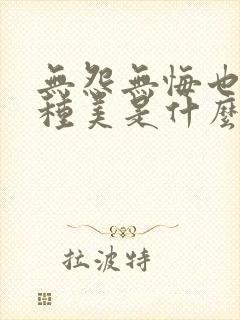 無怨無悔也
種美是什麼
拉波特